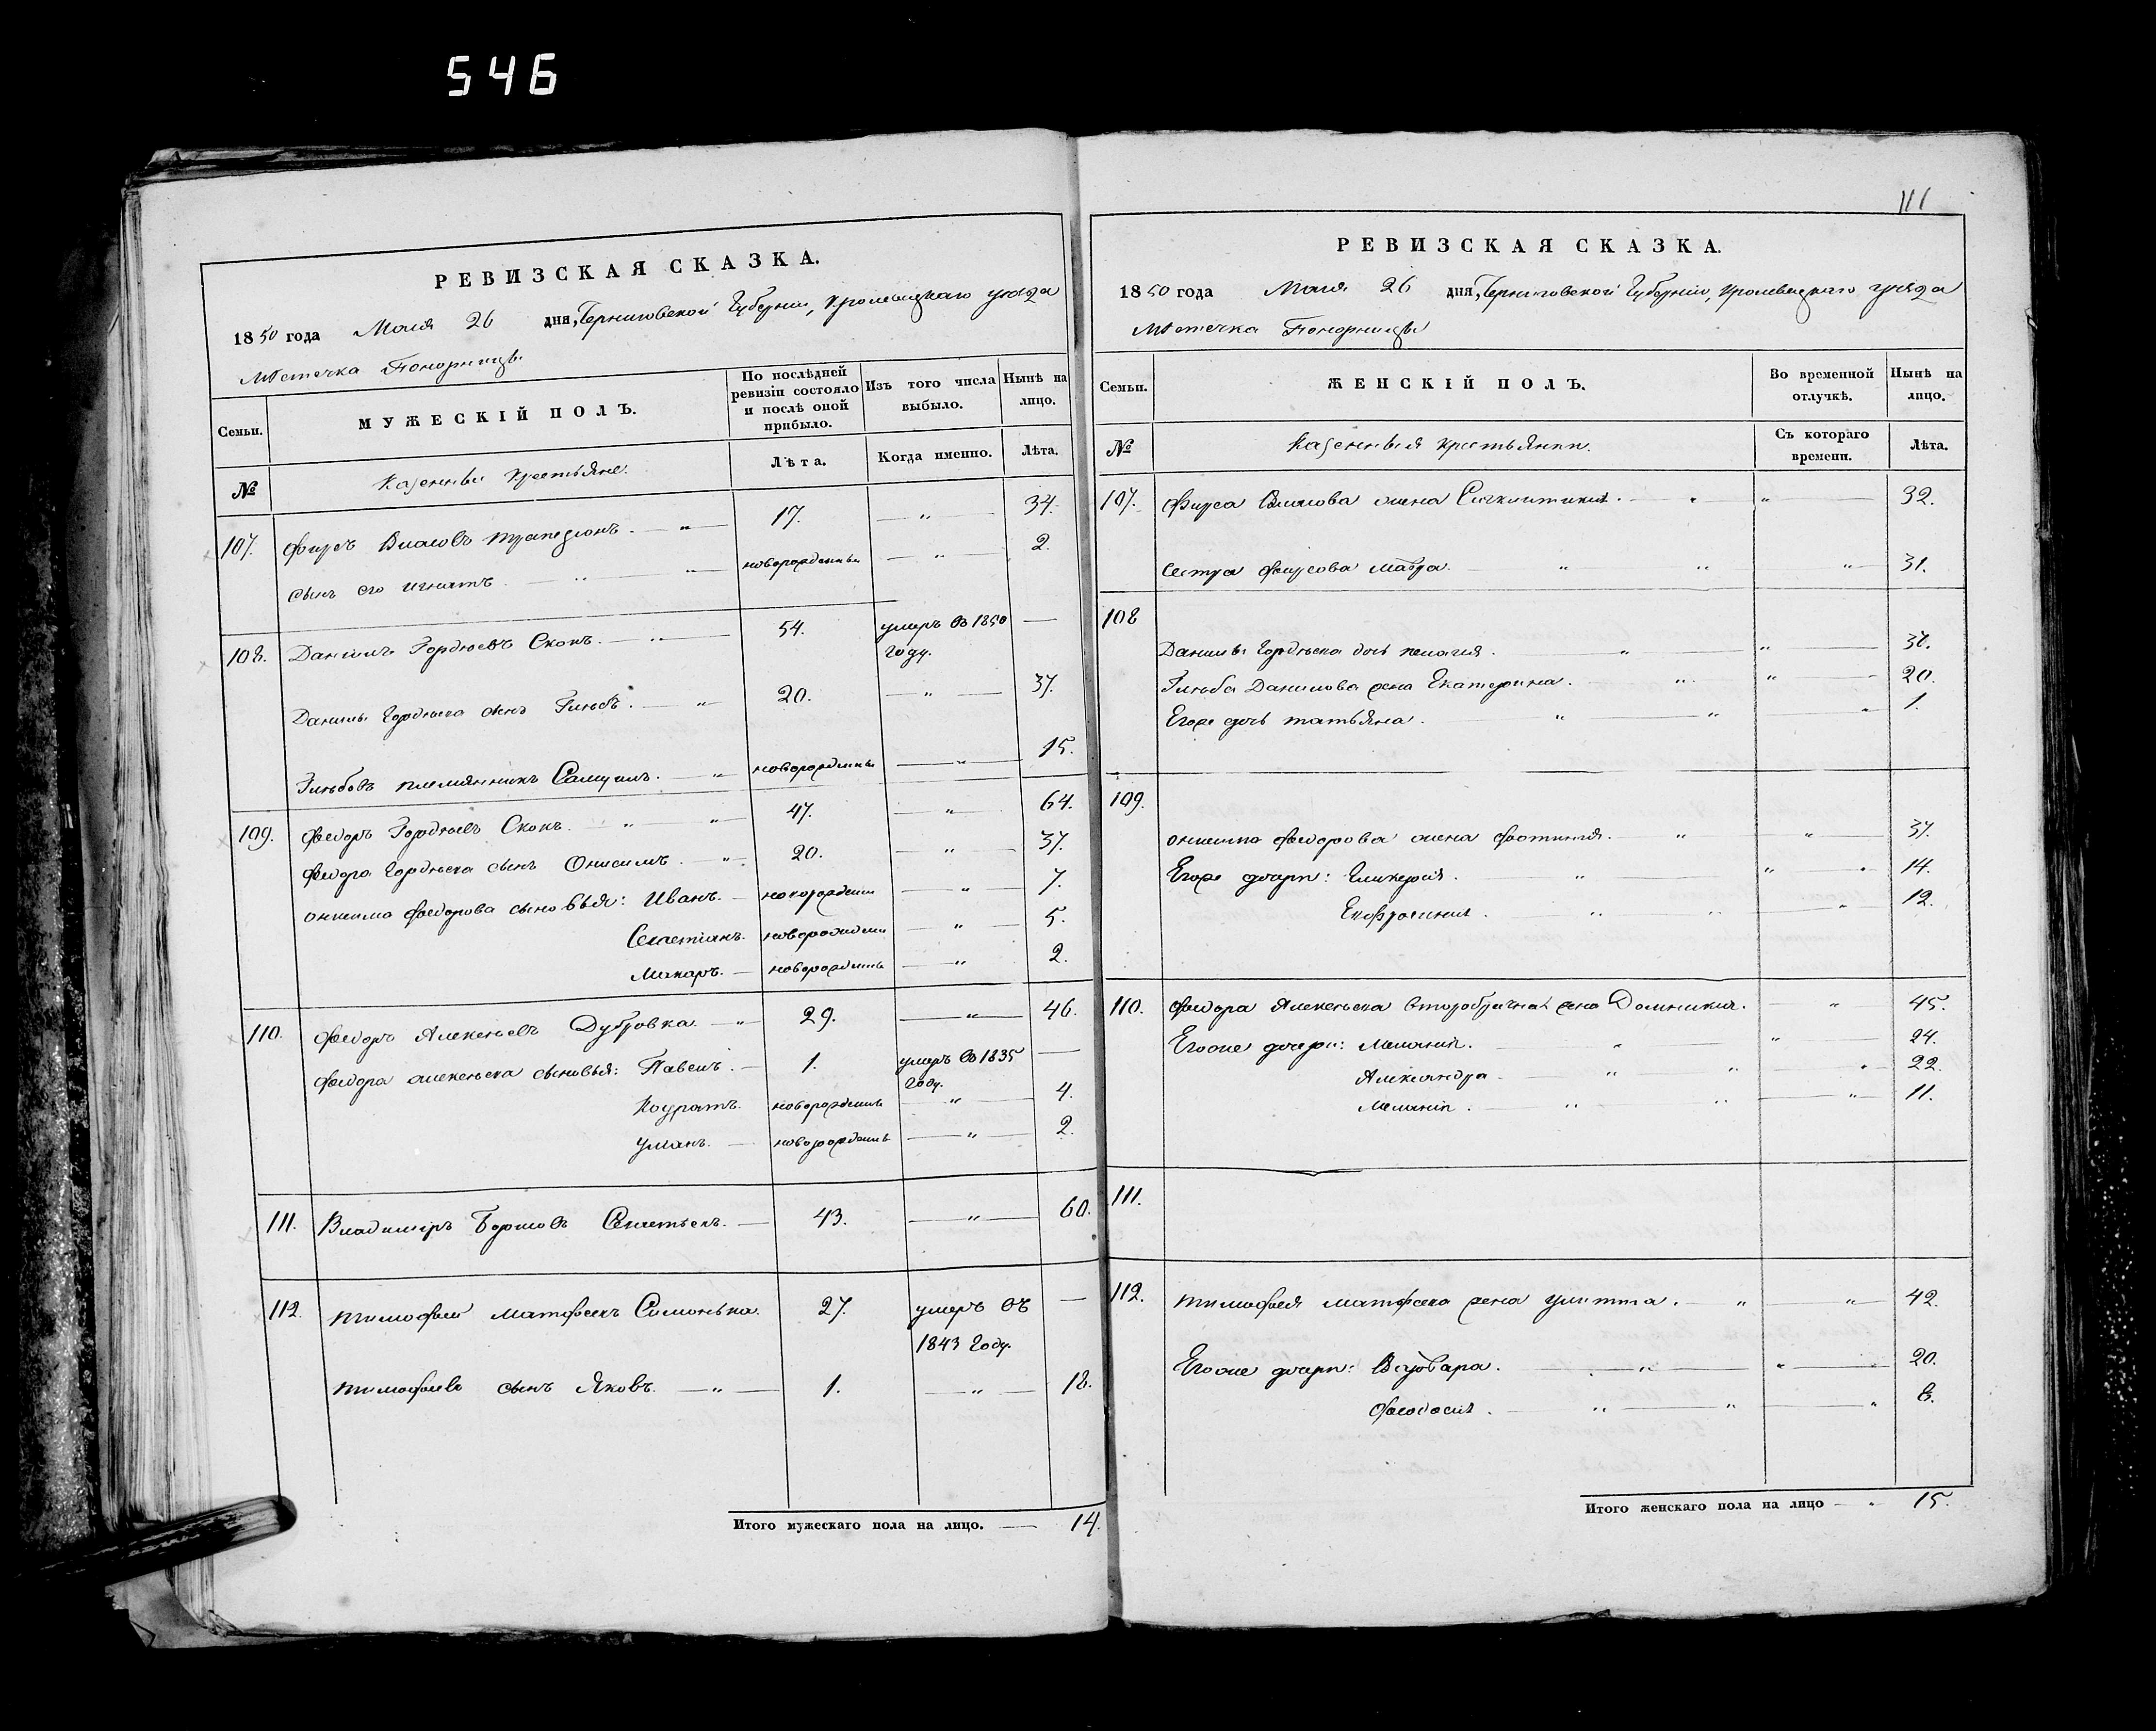 546
111
РЕВИЗСКАЯ СКАЗКА.
1850 года Маия 26 дня, Черниговской Губерніи, Кролевецкаго уѣзда
Мѣстечка Понорницы
Семьи.
МУЖЕСКІЙ ПОЛЪ.
По послѣдней ревизіи состояло и послѣ оной прибыло.
Изъ того числа выбыло.
Нынѣ на лицо.
№
Казенные крестьяне.
Лѣта.
Когда именно.
Лѣта.
107. Фирсъ Власовъ 17. — „ — 34.
сынъ его Игнатъ новорожденны — „ — 2.
108. Даніилъ Гордѣевъ Скокъ. 54. умеръ въ 1850 году. —
Даниила Гордѣева сынъ Глѣбъ. 20. — „ — 37.
Глѣбовъ племянникъ Самуилъ. новорожденны — „ — 15.
109. Федоръ Гордѣевъ Скокъ. 47. — „ — 64.
Федора Гордѣева сынъ Онисимъ. 20. — „ — 37.
Онисима Федорова сыновья: Иванъ. новорожденны — „ — 7.
новорожденны — „ — 5.
Макаръ. новорожденны — „ — 2.
110. Федоръ Алексѣевъ Дубровка. 29. — „ — 46.
Федора Алексѣева сыновья: Павелъ. 1. умеръ въ 1835 году. —
новорожденны — „ — 4.
новорожденны — „ — 2.
111. Владиміръ 43. — „ — 60.
112. Тимофей Матфеевъ Симонька. 27. умеръ въ 1843 году. —
Тимофеевъ сынъ Яковъ. 1. — „ — 18.
Итого мужескаго пола на лицо. — 14.
РЕВИЗСКАЯ СКАЗКА.
1850 года Маия 26 дня, Черниговской Губерніи, Кролевецкаго уѣзда
Мѣстечка Понорницы
Семьи.
ЖЕНСКІЙ ПОЛЪ.
Во временной отлучкѣ.
Нынѣ на лицо.
№
Казенныя крестьянки.
Съ котораго времени.
Лѣта.
107. Фирса Власова жена „ 32.
Сестра Фирсова Мавра. „ 31.
108
Даниила Гордѣева дочь Пелагия. „
Глѣба Данилова жена Екатерина. „ 20.
Егоже дочь Татьяна. „ 1.
109.
Онисима Федорова жена Фотиния. „ 37.
Егоже дочери: Гликерия. „ 14.
Ефросиния. „ 12.
110. Федора Алексѣева второбрачная жена Домникия. „ 45.
Егоже дочери: Меланія. „ 24.
Александра „ 22.
Меланія. „ 11.
111.
112. Тимофея Матфеева жена Улитта. „ 42.
Егоже дочери: Варвара. „ 20.
Феодосия. „ 8.
Итого женскаго пола на лицо — 15.